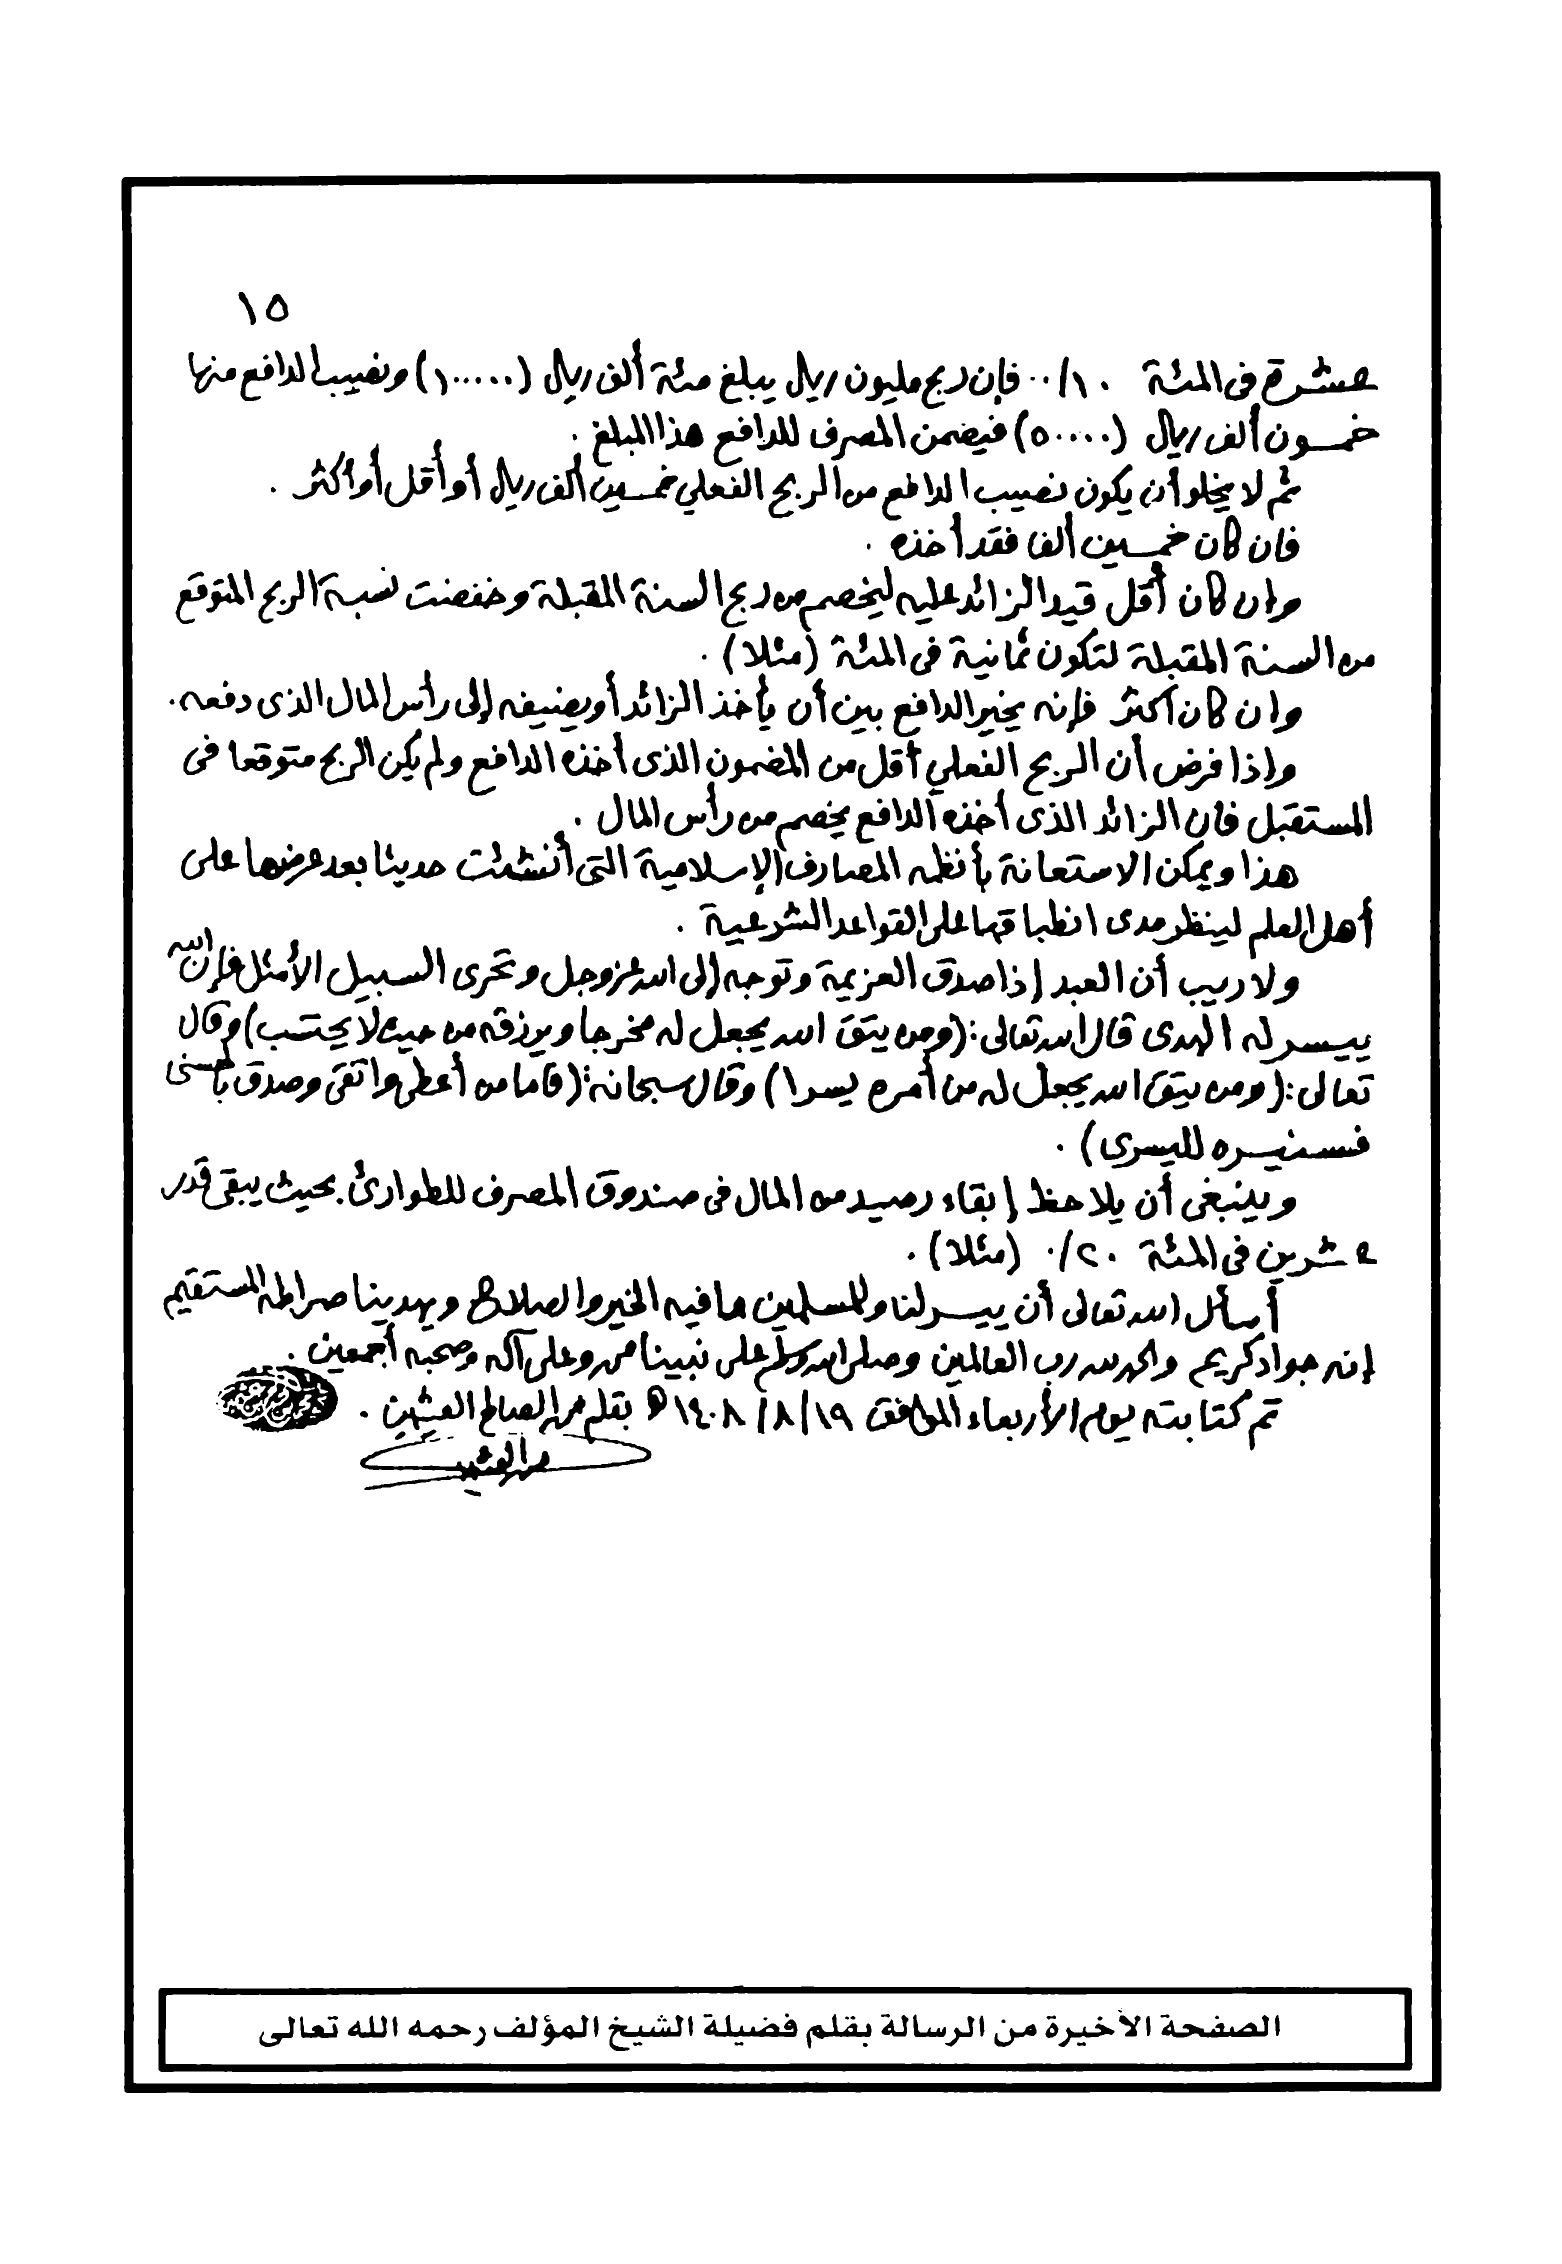 ١٥
عشرة فى المئة ١٠/٠٠ فإن ربح مليون ريال يبلغ مئة ألف ريال (١٠٠٠٠٠) ونصيب الدافع منها
خمسون ألف ريال (٥٠٠٠٠) فيضمن المصرف للدافع هذا المبلغ .
ثم لا يخلو أن يكون نصيب الدافع من الربح الفعلي خمسين ألف ريال أو أقل أو أكثر .
فان كان خمسين ألفا فقد أخذه .
وان كان أقل قيد الزائد عليه ليخصم من ربح السنة المقبلة وخفضت نسبة الربح المتوقع
من السنة المقبلة لتكون ثمانية فى المئة (مثلا) .
وان كان أكثر فإنه يخير الدافع بين أن يأخذ الزائد أو يضيفه إلى رأس المال الذى دفعه .
واذا فرض أن الربح الفعلي أقل من المضمون الذى أخذه الدافع ولم يكن الربح متوقعا فى
المستقبل فان الزائد الذى أخذه الدافع يخصم من رأس المال .
هذا ويمكن الاستعانة بأنظمه المصارف الإسلامية التى أنشئت حديثا بعد عرضها على
أهل العلم لينظر مدى انطباقها على القواعد الشرعية .
ولا ريب أن العبد إذا صدق العزيمة وتوجه إلى الله عز وجل وتحرى السبيل الأمثل فإن الله
ييسر له الهدى قال الله تعالى : (ومن يتق الله يجعل له مخرجا ويرزقه من حيث لا يحتسب) وقال
تعالى : (ومن يتق الله يجعل له من أمره يسرا) وقال سبحانه : (فأما من أعطى واتقى وصدق بالحسنى
فسنيسره لليسرى) .
وينبغى أن يلاحظ إبقاء رصيد من المال فى صندوق المصرف للطوارئ . بحيث يبقى قدر
عشرين فى المئة ٢٠/٠ (مثلا) .
أسأل الله تعالى أن ييسر لنا وللمسلمين ما فيه الخير والصلاح ويهدينا صراطه المستقيم
إنه جواد كريم والحمد لله رب العالمين وصلى الله وسلم على نبينا محمد وعلى آله وصحبه أجمعين .
تم كتابته يوم الأربعاء الموافق ١٩/٨/١٤٠٨ه بقلم محمد الصالح العثيمين .
محمد العثيمين
الصفحة الأخيرة من الرسالة بقلم فضيلة الشيخ المؤلف رحمه الله تعالى